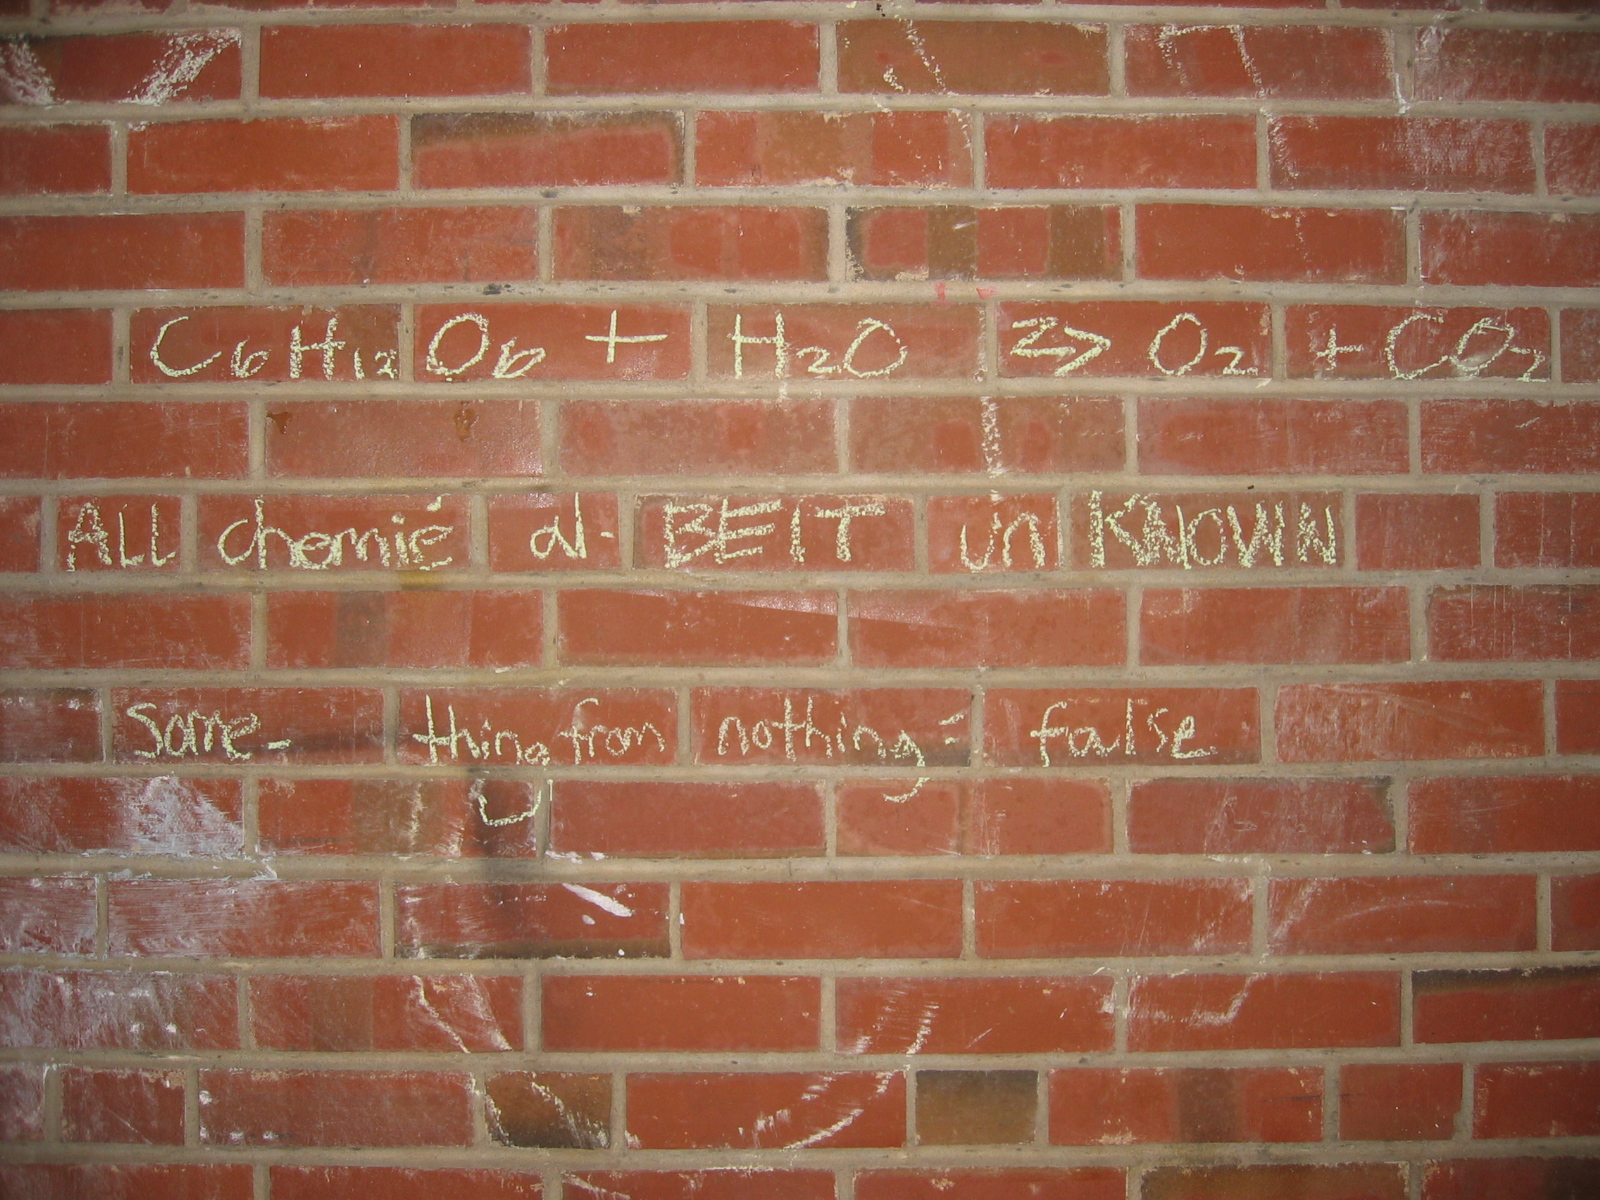 C6H12O6 + H2O => O2 + CO2
ALL chemié al-BEIT unKNOWN
Some-thing from nothing = false